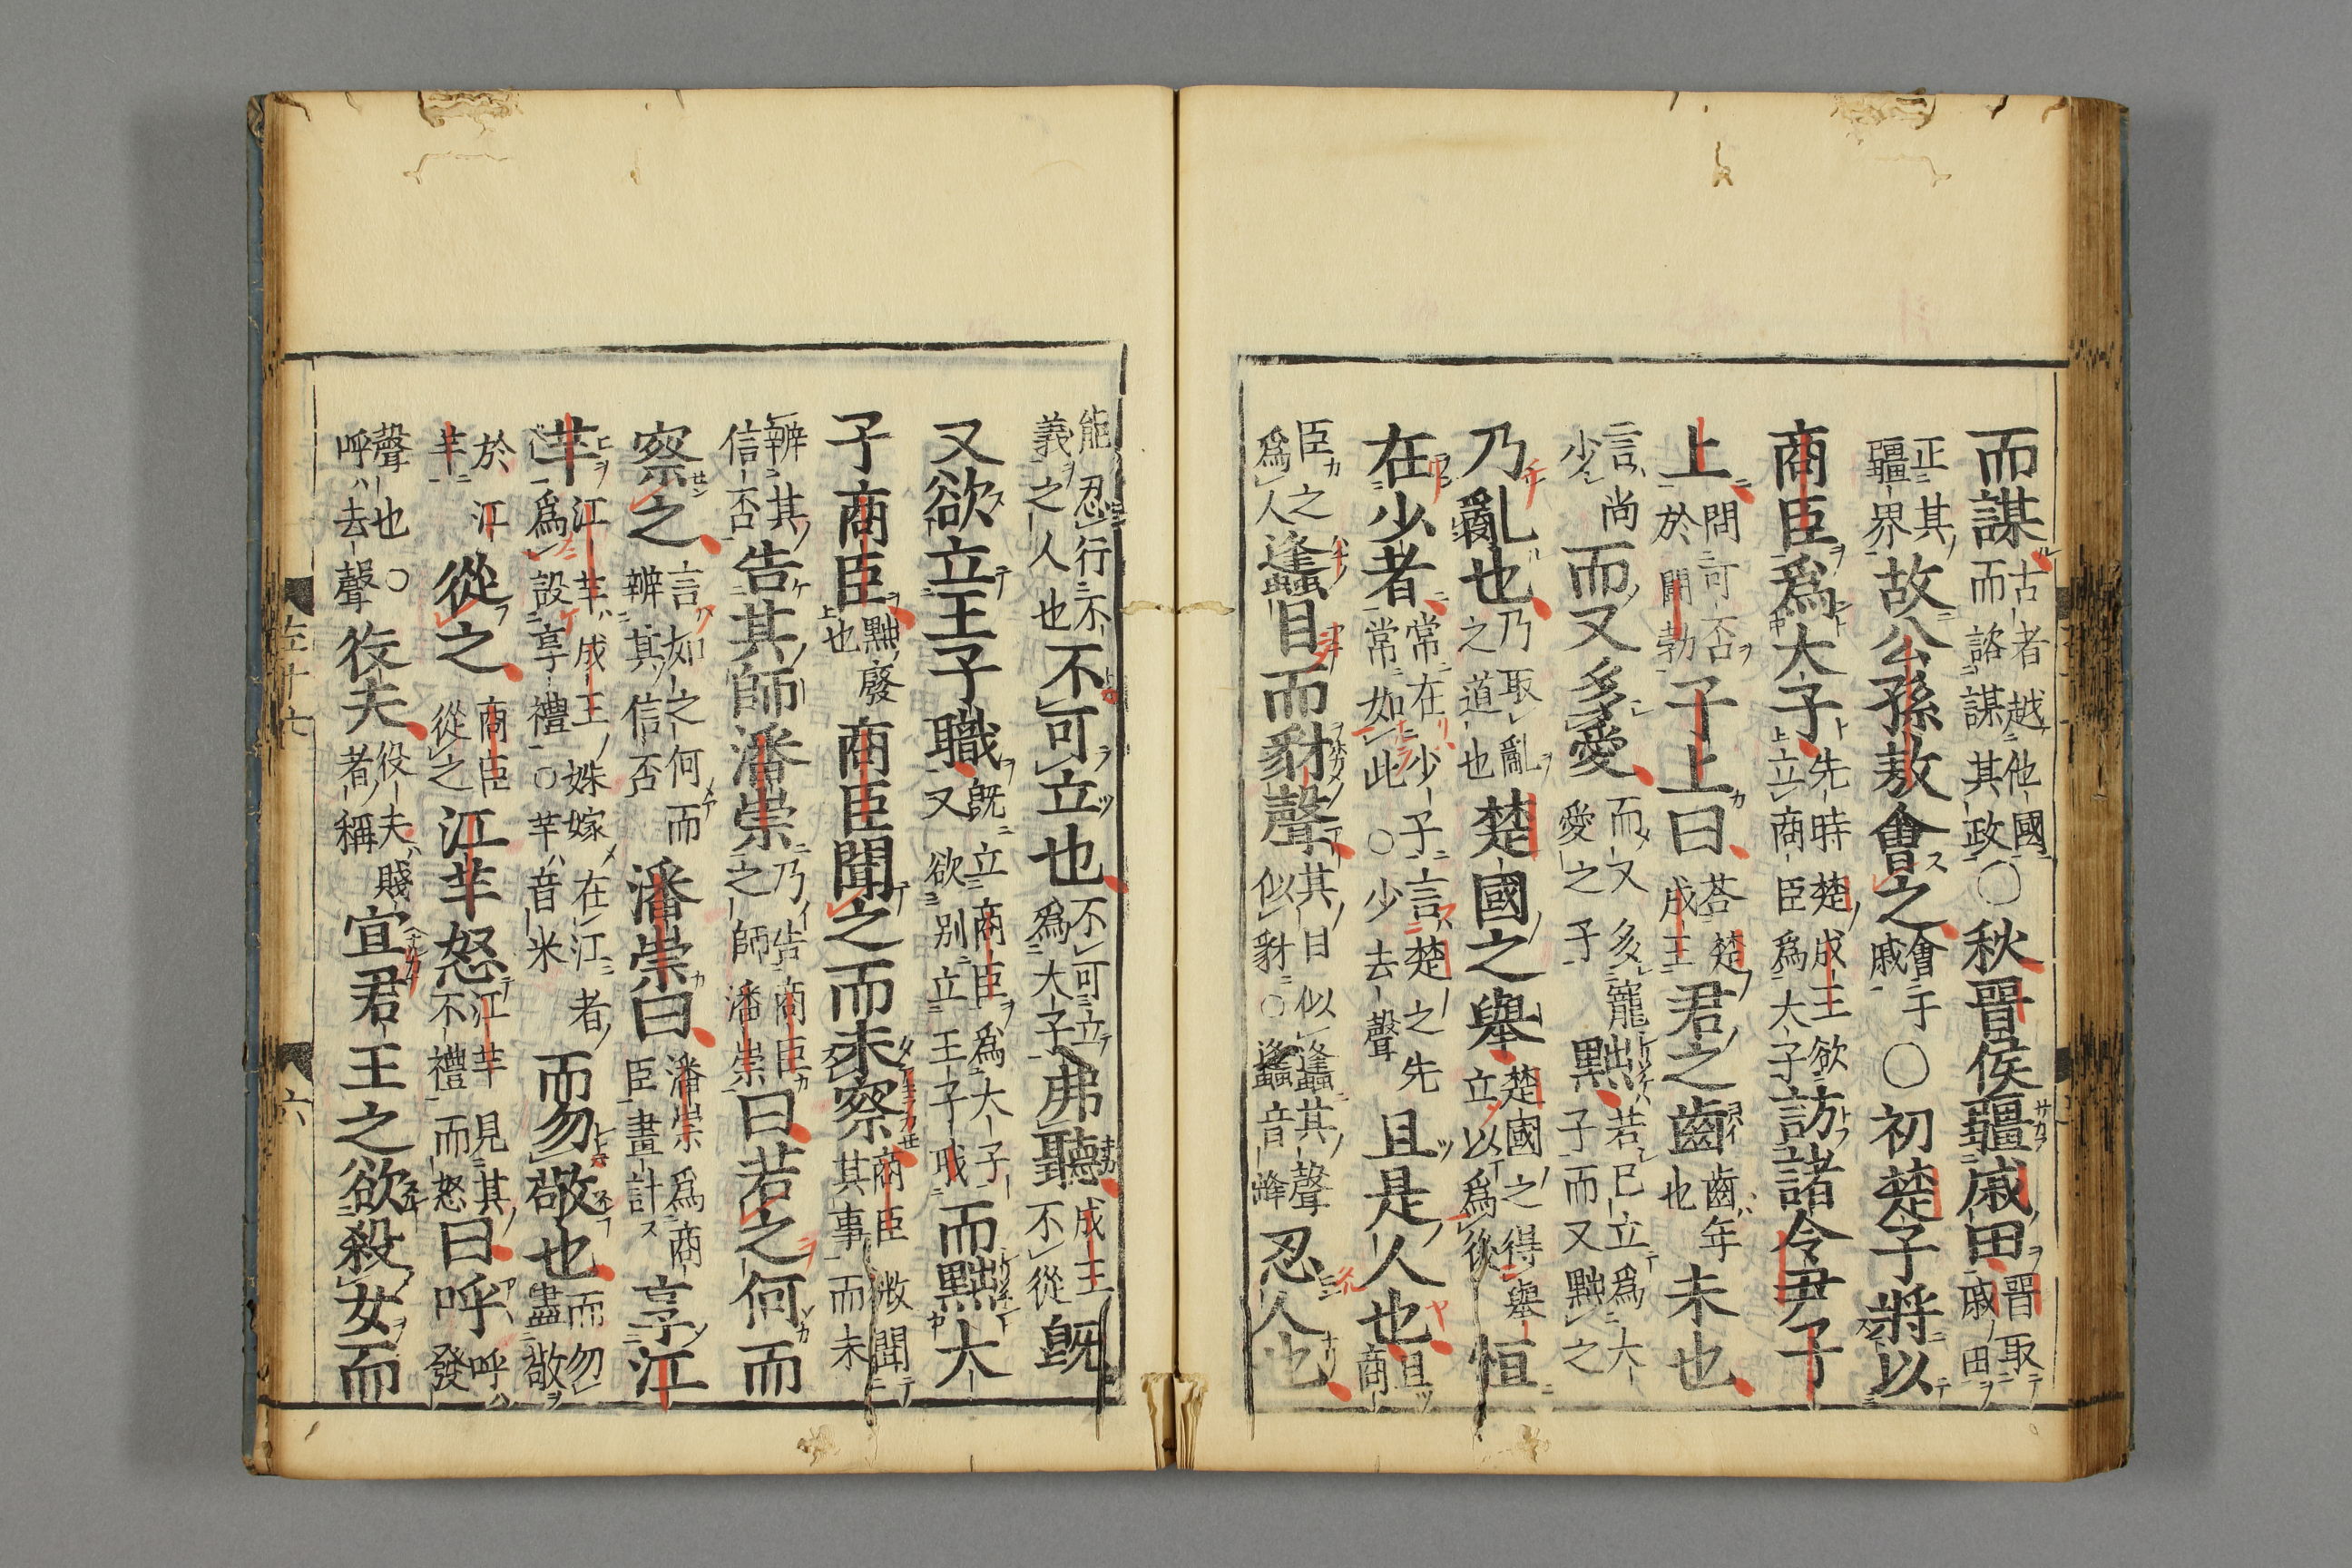 而謀古者越他國而諮謀其政○秋晉侯疆戚田晉取戚田
正其疆界故公孫敖會之會于戚○初楚子將以
商臣爲大子先時楚成王欲立商臣爲大子訪諸令尹子
上問可否於鬬勃子上曰荅楚成王君之齒齒年也未也
言尚少而又多愛而又多寵愛之子黜若已立爲大子而又黜之
乃亂也乃取亂之道也楚國之舉楚國之得舉立以爲後恒
在少者常在少子言楚之先常如此○少去聲且是人也且商
臣之爲人蠭目而豺聲其目似蠭其聲似豺○蠭音峰忍人也
能忍行不義之人也不可立也不可立爲大子弗聽成王不從旣
又欲立王子職旣立商臣爲大子又欲別立王子職而黜大
子商臣黜廢也商臣聞之而未察商臣微聞其事而未
辨其信否告其師潘崇乃告商臣之師潘崇曰若之何而
察之言如之何而辨其信否潘崇曰潘崇爲商臣畫計享江
羋江羋成王姝嫁在江者爲設享禮○羋音米而勿敬也而勿盡敬
於江羋從之商臣從之江羋怒江羋見其不禮而怒曰呼呼發
聲也○呼去聲役夫役夫賤者稱宜君王之欲殺女而
左十七
六